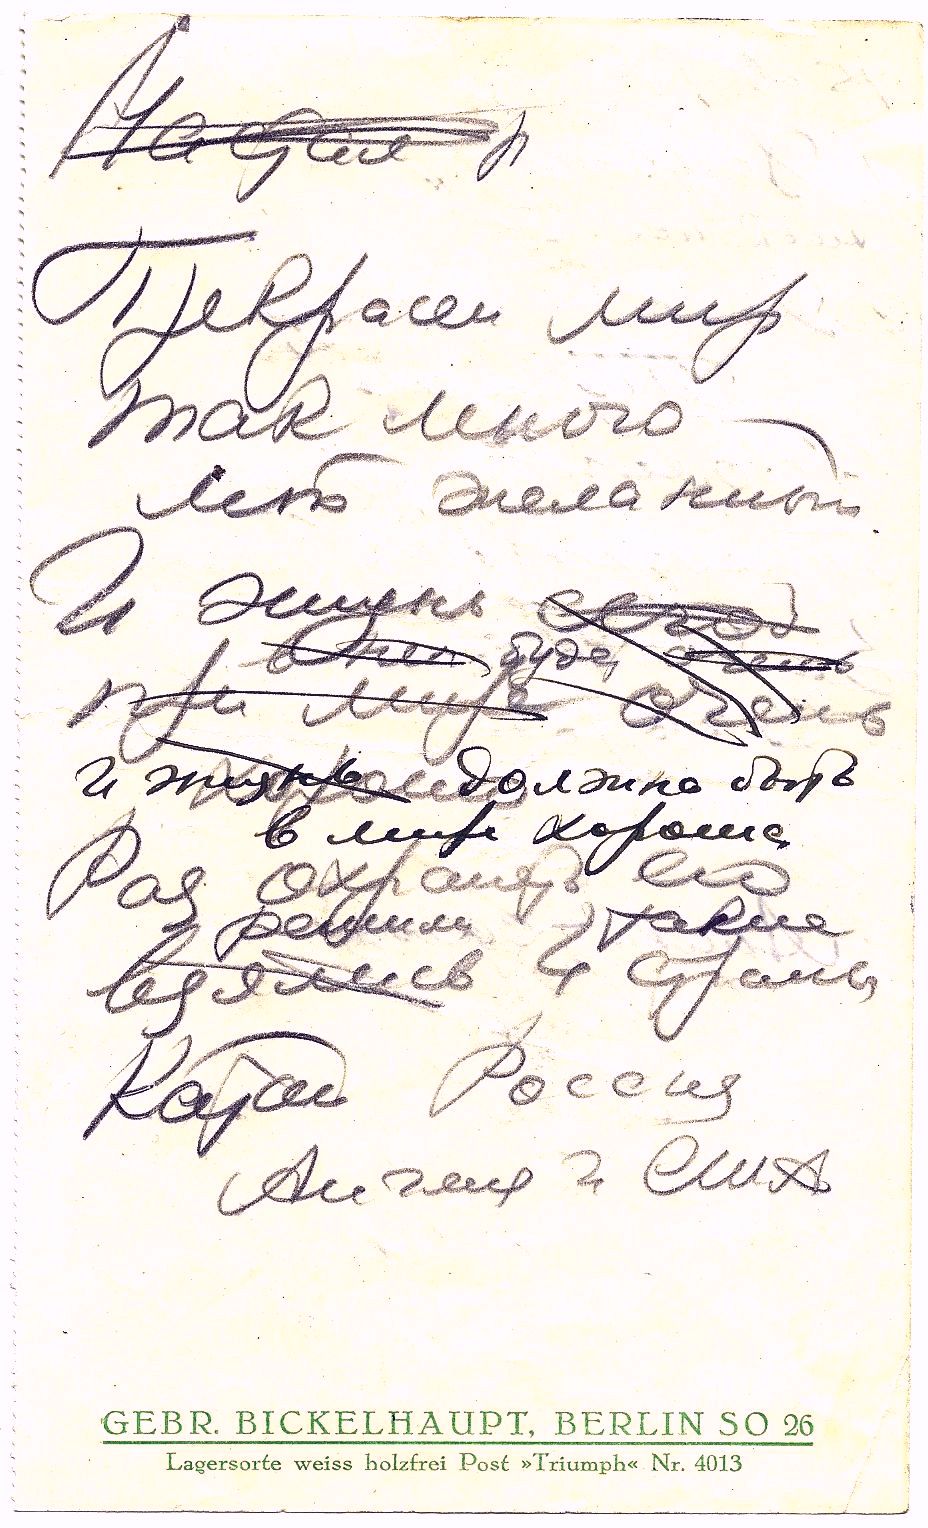 Прекрасен мир
так много
лет желанный
И жизнь
буде
при мире очень
и жизнь должна быть
в мире хороша
Рая охранять его
решили такие
взялись 4 страны
Китай Россия
Англия и США
GEBR. BICKELHAUPT, BERLIN SO 26
Lagersorte weiss holzfrei Post »Triumph« Nr. 4013